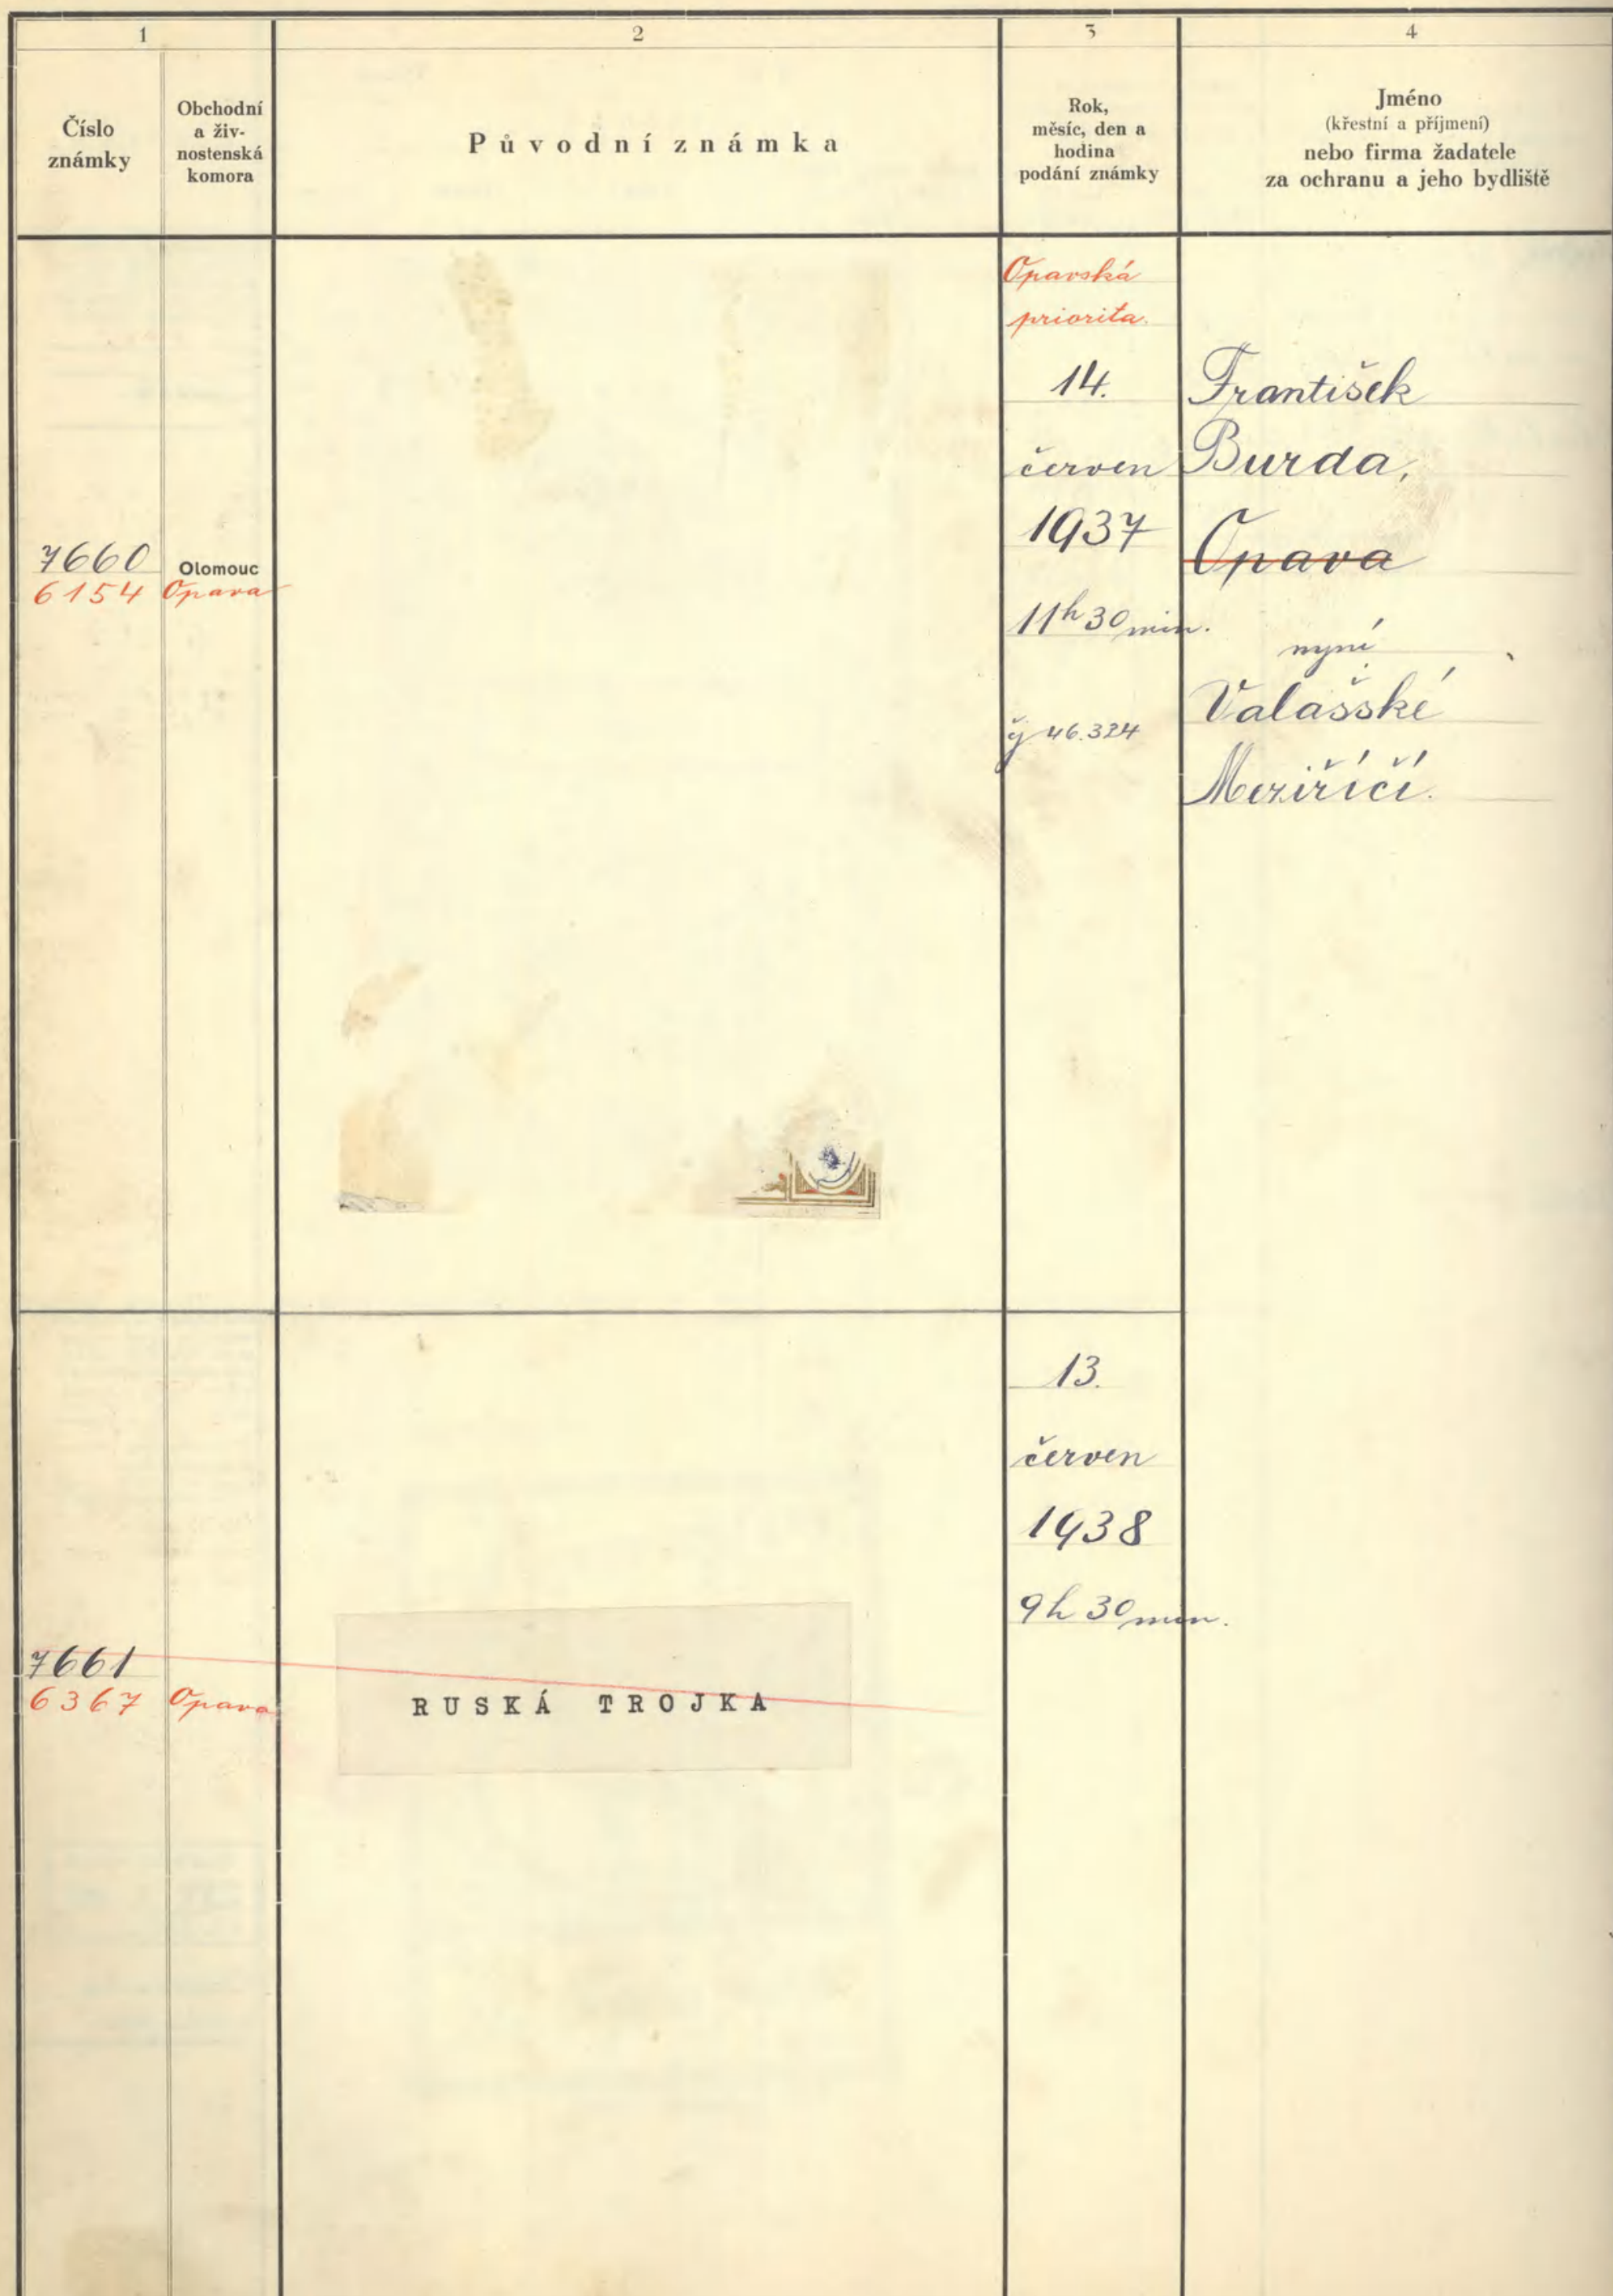 1
2
3
4
Číslo
známky
Obchodní
a živ-
nostenská
komora
Původní známka
Rok,
měsíc, den a
hodina
podání známky
Jméno
(křestní a příjmení)
nebo firma žadatele
za ochranu a jeho bydliště
7660
6154
Olomouc
Opava
Opavská
priorita.
14.
červen
1937
11h 30 min.
46.324
František
Burda,
Opava
nyní
Valašské
Meziříčí.
7661
6367
Opava
RUSKÁ TROJKA
13.
červen
1938
9h 30 min.